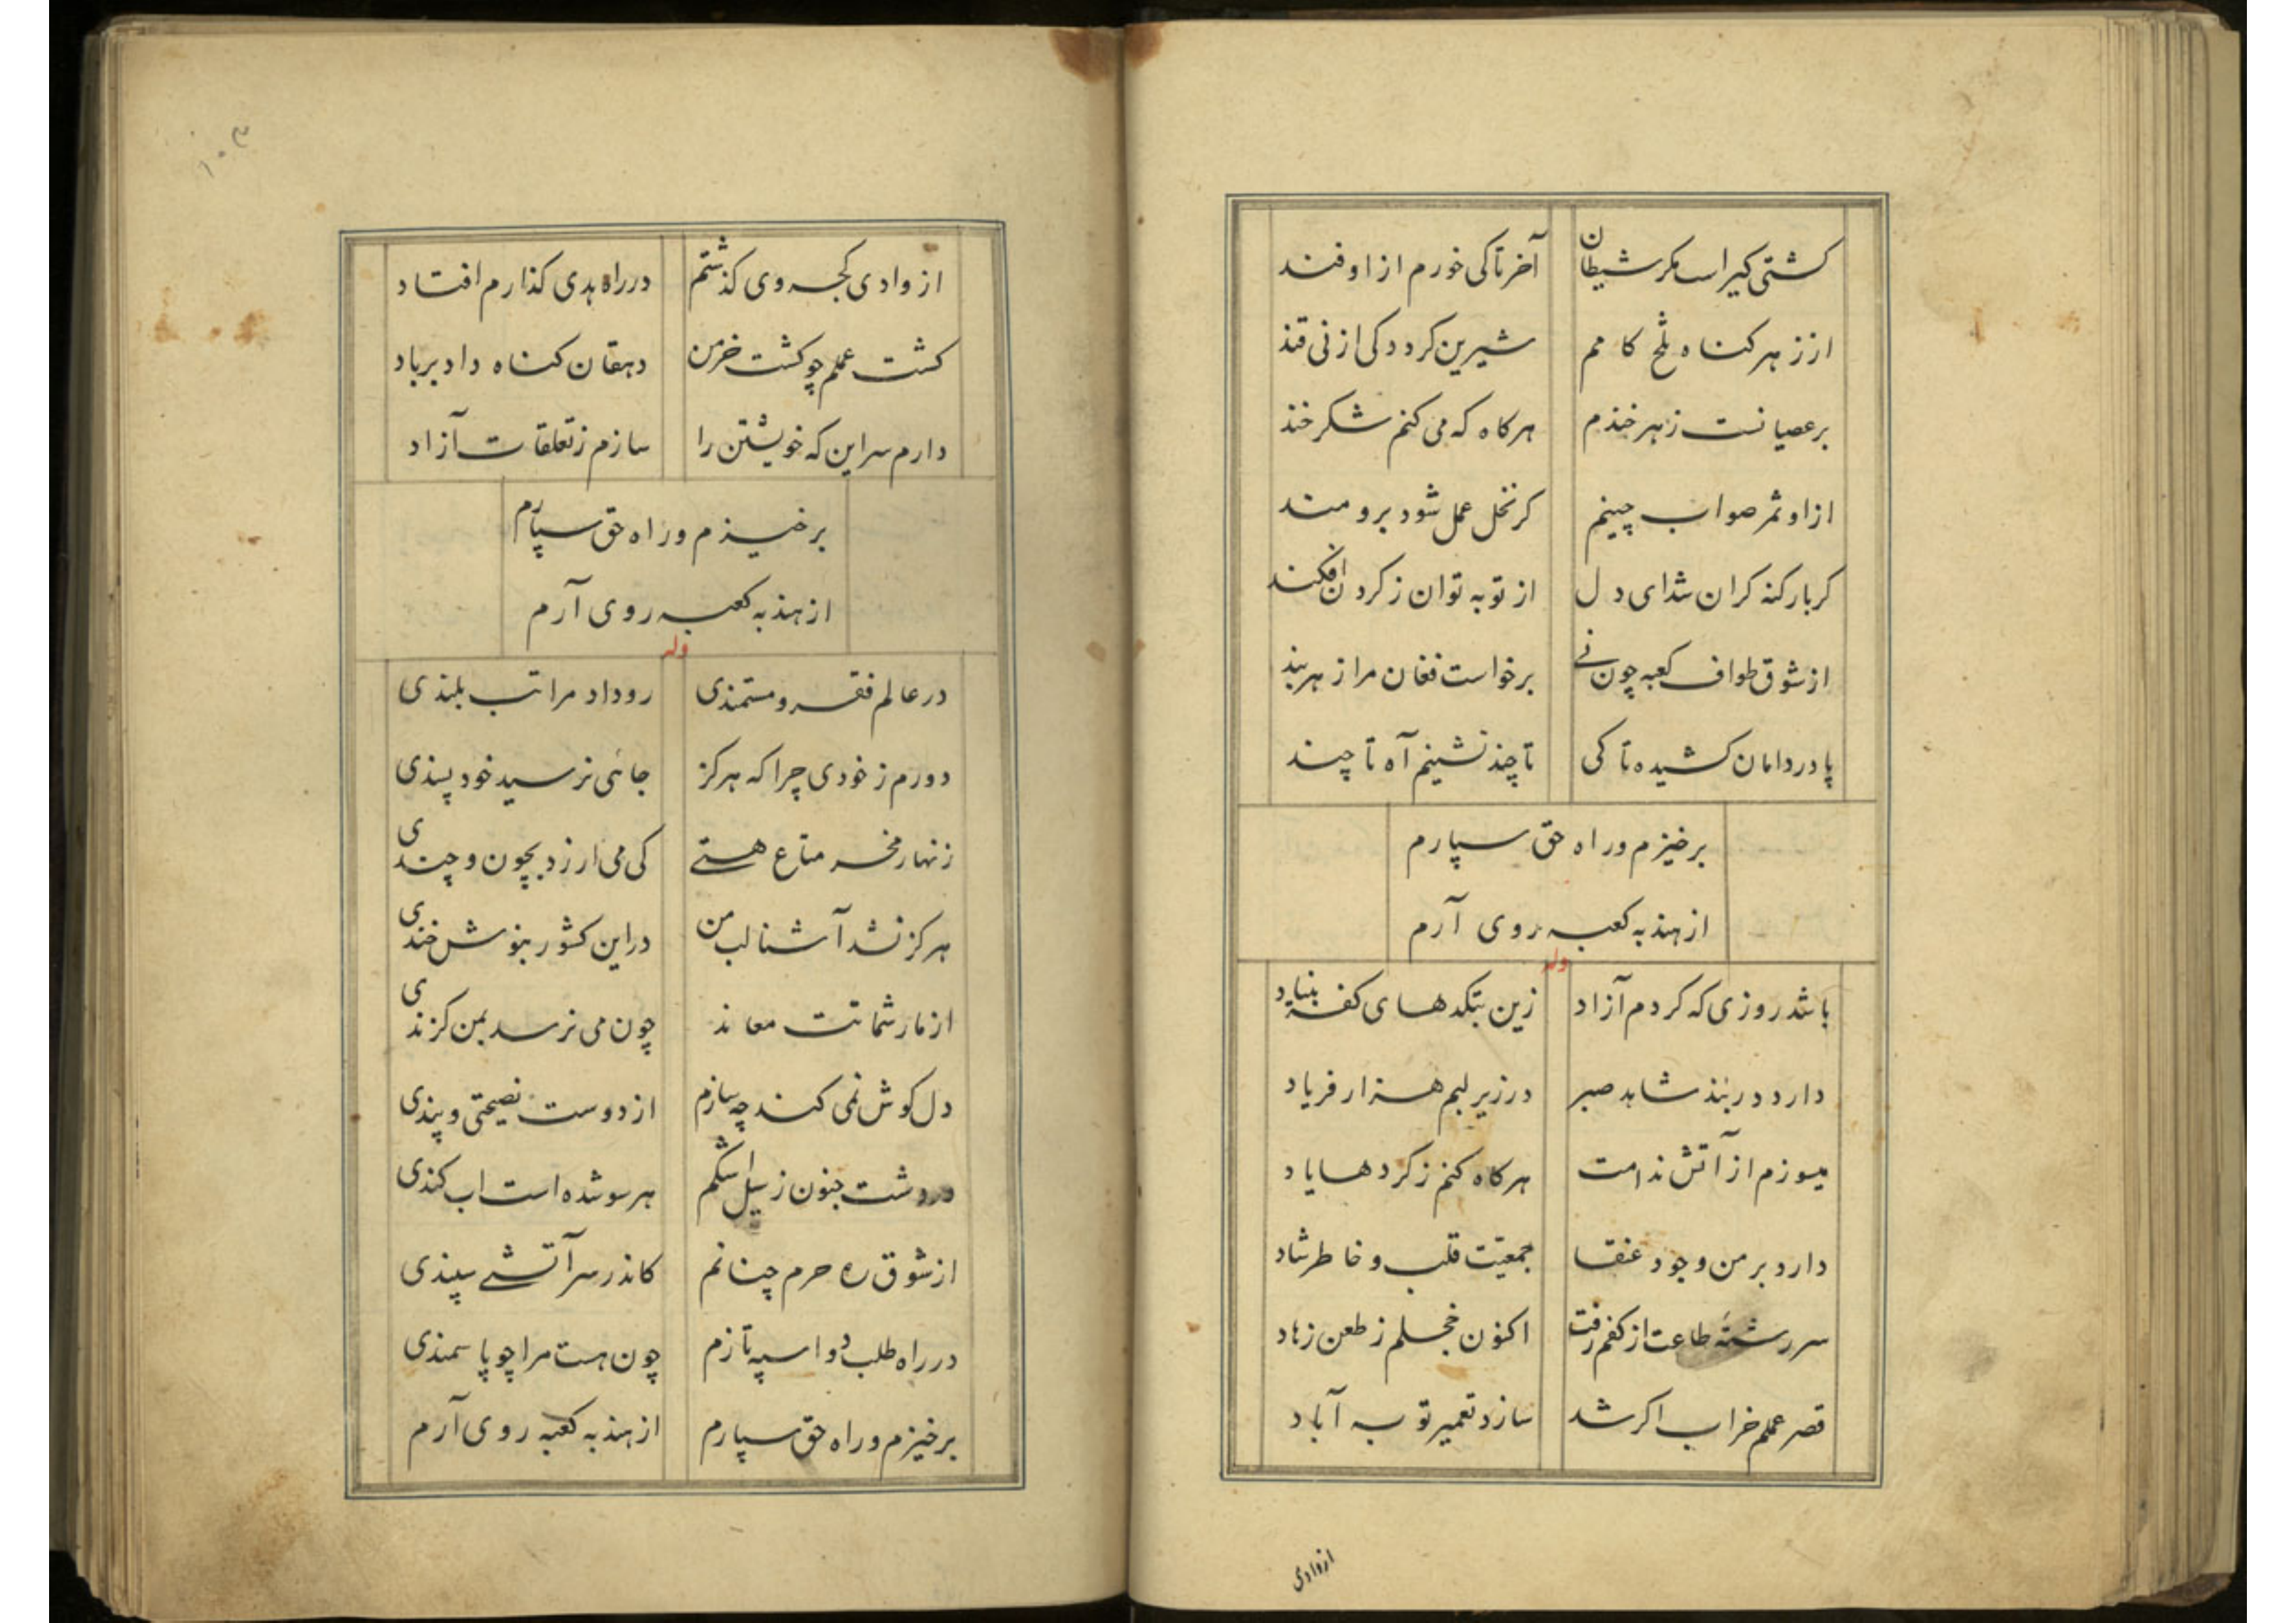 کشتی کیر است مکر شیطان آخر تا کی خورم از او فند
از زهر کناه تلخ کامم شیرین کردد کی از نی قند
بر عصیانست زهرخندم هرکاه که می کنم شکرخند
از او ثمر صواب چینم کر نخل عمل شود برومند
کر بار کنه کران شد ای دل از توبه توان ز کردن افکند
از شوق طواف کعبه چون نی برخواست فغان مرا ز هر بند
پا در دامان کشیده تا کی تا چند نشینم آه تا چند
برخیزم و راه حق سپارم
از هند به کعبه روی آرم
وله
باشد روزی که کردم آزاد زین بتکدهای کفر بنیاد
دارد در بند شاهد صبر در زیر لبم هزار فریاد
میسوزم از آتش ندامت هرکاه کنم ز کردها یاد
دارد بر من وجود عنقا جمعیّت قلب و خاطر شاد
سر رشتهٔ طاعت از کفم رفت اکنون خجلم ز طعن زهاد
قصر عملم خراب اکر شد سازد تعمیر توبه آباد
از وادی
۱۰۳
از وادی کجروی کذشتم در راه هدی کذارم افتاد
کشت عملم چو کشت خرمن دهقان کناه داد بر باد
دارم سر این که خویشتن را سازم ز تعلقات آزاد
برخیزم و راه حق سپارم
از هند به کعبه روی آرم
وله
در عالم فقر و مستمندی رو داد مراتب بلندی
دورم ز خودی چرا که هرکز جائی نرسید خود پسندی
زنهار مخر متاع هستی کی می ارزد بچون و چندی
هرکز نشد آشنا لب من در این کشور بنوشخندی
از مار شماتت معاند چون می نرسد بمن کزندی
دل کوش نمی کند چه سازم از دوست نصیحتی و پندی
در دشت جنون ز سیل اشکم هر سو شده است اب کندی
از شوق ره حرم چنانم کاندر سر آتشی سپندی
در راه طلب دو اسپه تازم چون هست مرا چو پا سمندی
برخیزم و راه حق سپارم از هند به کعبه روی آرم